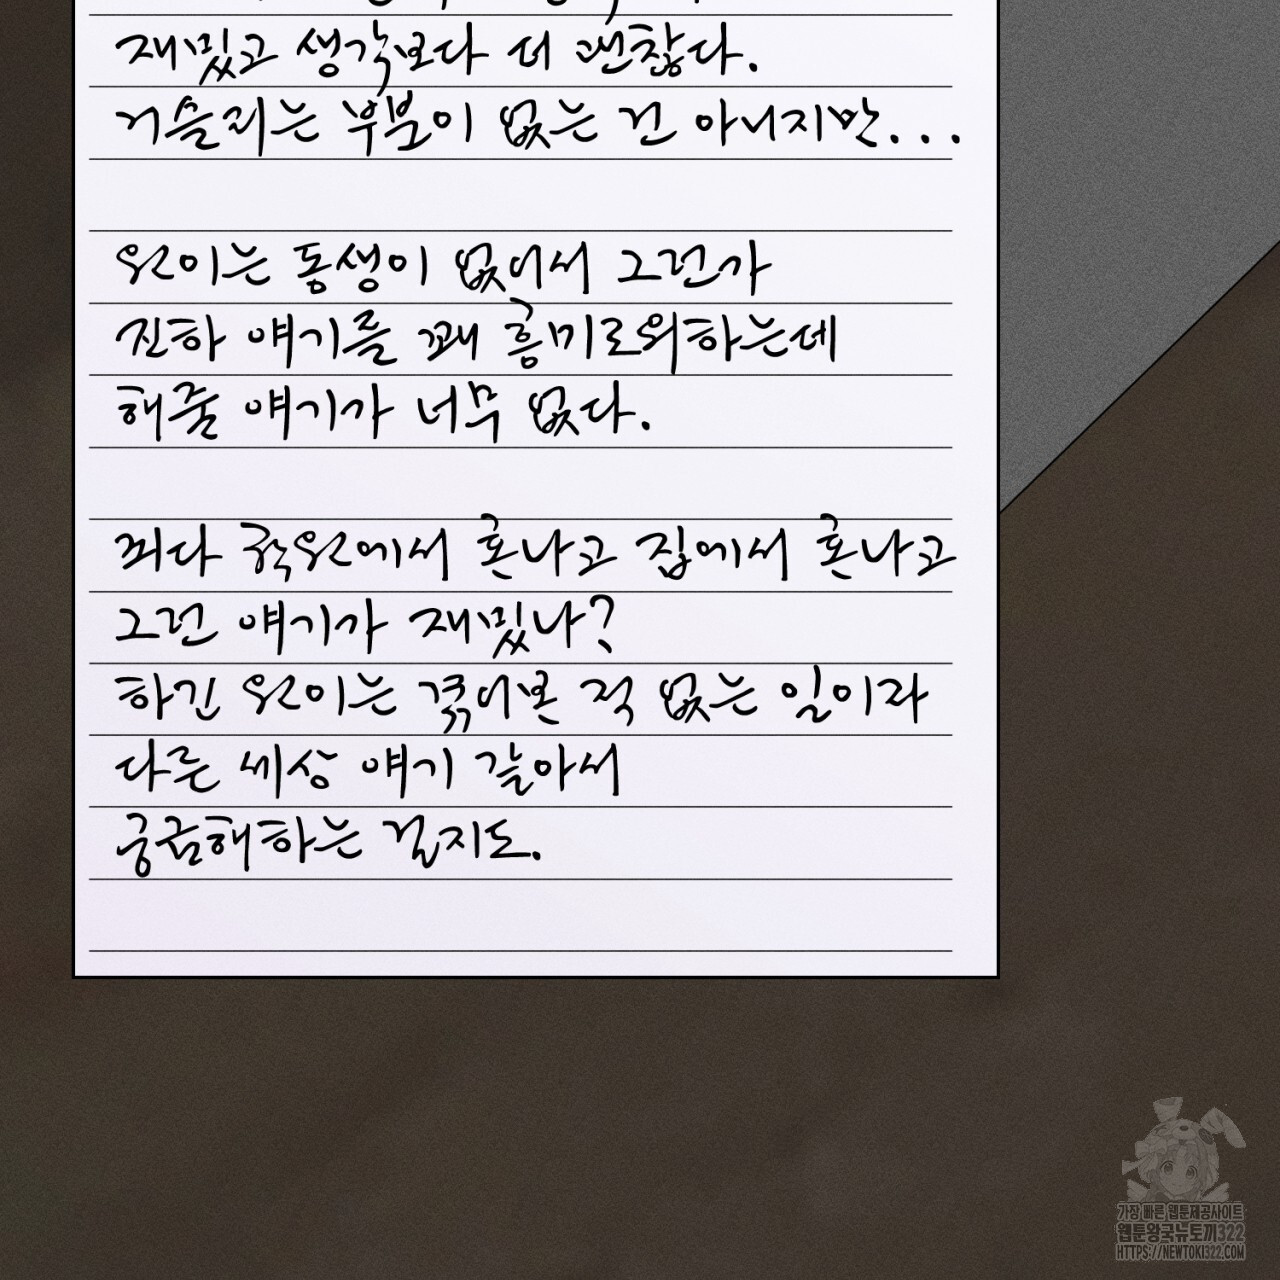 재밌고 생각보다 더 괜찮다.
거슬리는 부분이 없는 건 아니지만...
원이는 동생이 없어서 그런가
진하 얘기를 꽤 흥미로워하는데
해줄 얘기가 너무 없다.
죄다 학원에서 혼나고 집에서 혼나고
그런 얘기가 재밌나?
하긴 원이는 겪어본 적 없는 일이라
다른 세상 얘기 같아서
궁금해하는 걸지도.
가장 빠른 웹툰제공사이트
웹툰왕국뉴토끼322
HTTPS://NEWTOKI322.COM